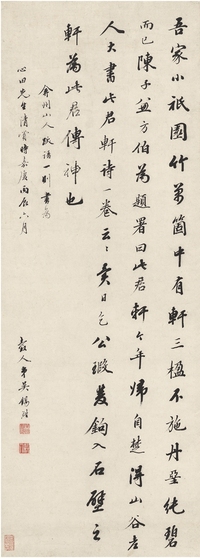 吾家小祇園竹萬箇中有軒三楹不施丹堊純碧
而已陳子兼方伯為題署曰此君軒今年歸自楚得山谷老
人大書此君軒詩一卷云云異日乞公瑕雙鉤入石壁之
軒為此君傳神也
弇州山人跋語一則書為
心田先生清鑒時嘉慶丙辰六月
穀人弟吳錫麒